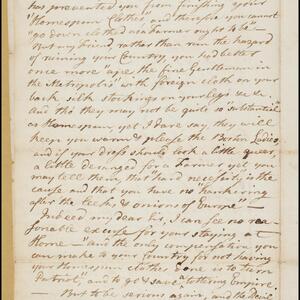 has prevented you from finishing your
"Homespun Clothes and therefore you cannot
"go down clothed as a farmer ought to be"
But my friend, rather than run the hazard
of ruining your Country, you had better
once more ape the fine Gentleman in
the Metropolis with foreign cloth on your
back silk stockings on your legs &c &c
and tho' they may not be quite so substantial
as Homespun, yet I dare say they will
keep you warm & please the Boston Ladies,
and if your dress should look a little queer,
a little deranged for a Farmer yet you
may tell them that hard necessity is the
cause and that you have no "hankering
after the leeks & onions of Europe" —
Indeed my dear Sir, I can see no rea
sonable excuse for your staying at
Home — and the only compensation you
can make to your Country for not having
your Homespun clothes done is to turn
Patriot, and to go & save a tottering Empire.
But to be serious again and the Devil